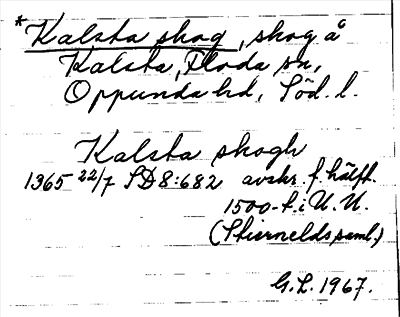 *Kalsta skog, skog å
Kalsta, Floda sn,
Oppunda hd, Söd. l.
Kalsta skogh
1365 22/7 SD 8:682 avskr. f. hälft.
1500-t. i U.U.
(Stiernelds saml.)
G.L. 1967.